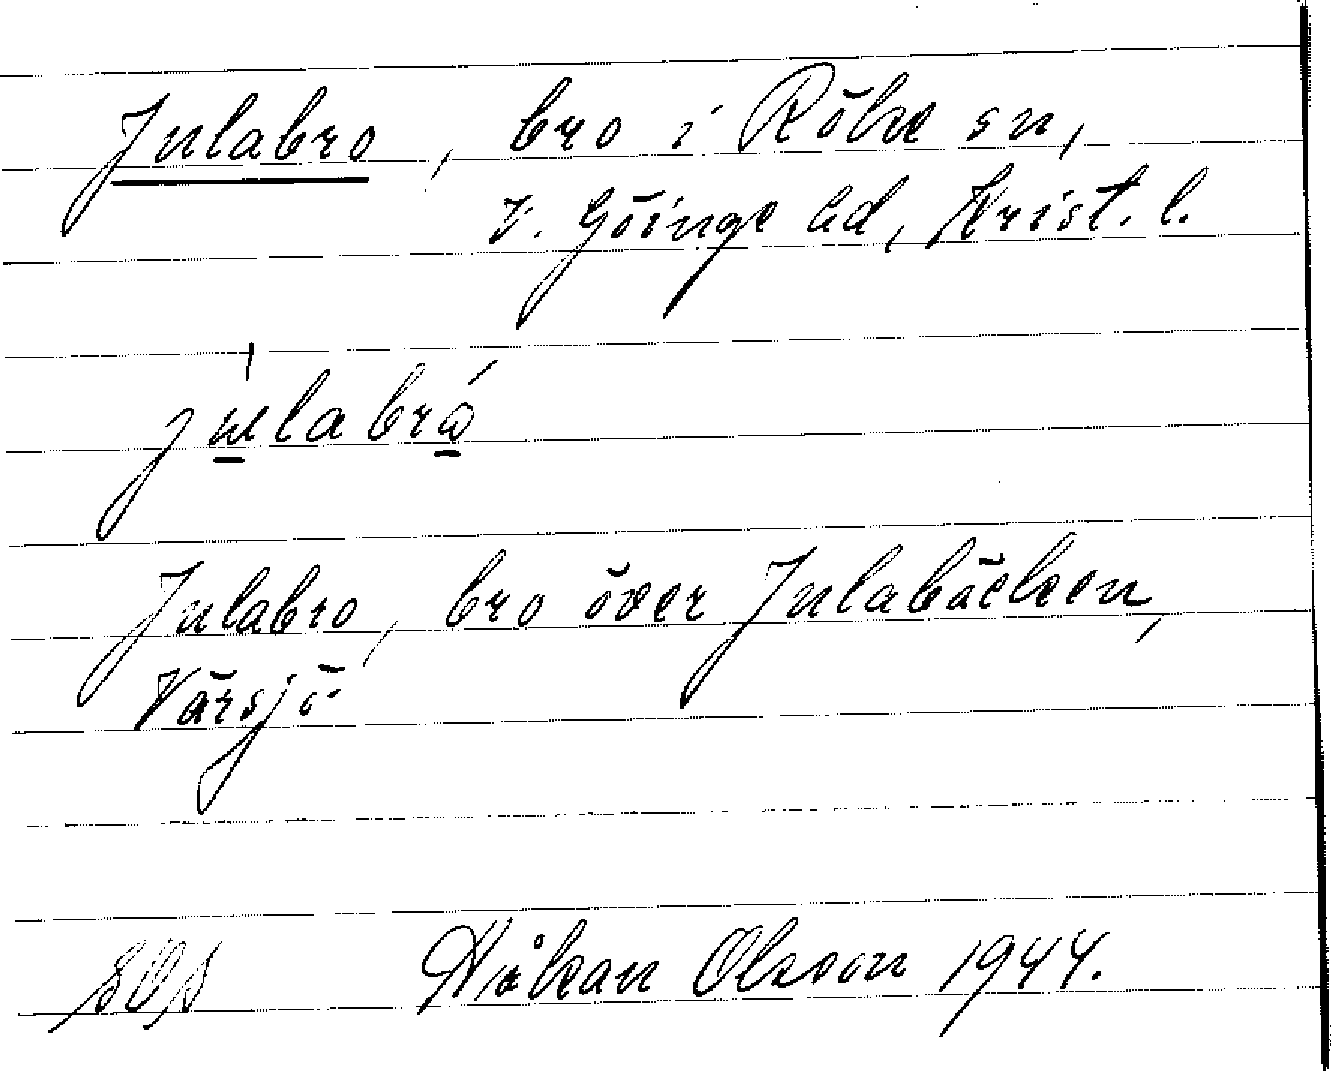 Julabro, bro i Röke sn,
V. Göinge hd, Krist. l.
julabró
Julabro, bro över Julabäcken,
Värsjö
Håkan Olsson 1944.